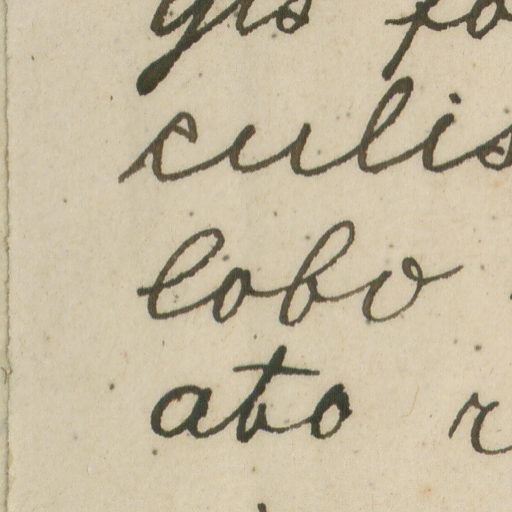 gis fo
culis
lobo
ato r